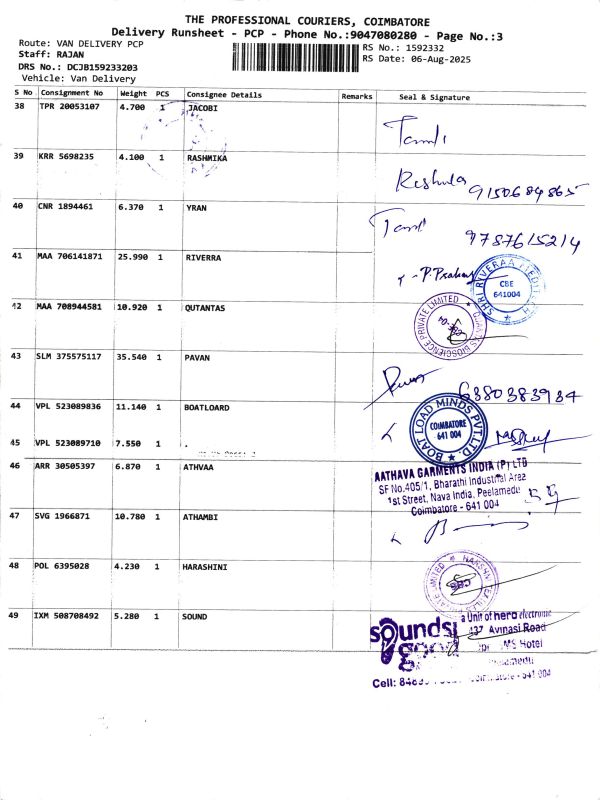 THE PROFESSIONAL COURIERS, COIMBATORE
Delivery Runsheet - PCP - Phone No.:9047080280 - Page No.:3
Route: VAN DELIVERY PCP
RS No.: 1592332
Staff: RAJAN
RS Date: 06-Aug-2025
DRS No.: DCJB159233203
Vehicle: Van Delivery
S No Consignment No Weight PCS Consignee Details Remarks Seal & Signature
38 TPR 20053107 4.700 1 JACOBI
Tamil
39 KRR 5698235 4.100 1 RASHMIKA
9150684865
40 CNR 1894461 6.370 1 YRAN
9787615214
41 MAA 706141871 25.990 1 RIVERRA
SHRI RIVERAA MEDITECH
CBE
641004
42 MAA 708944581 10.920 1 QUTANTAS
BIOSCIENCE PRIVATE LIMITED
CBE-04
43 SLM 375575117 35.540 1 PAVAN
6380383934
44 VPL 523089836 11.140 1 BOATLOARD
BOAT LOAD MINDS PVT.LTD.
COIMBATORE
641 004
45 VPL 523089710 7.550 1
46 ARR 30505397 6.870 1 ATHVAA
AATHAVA GARMENTS INDIA (P) LTD
SF No.405/1, Bharathi Industrial Area
1st Street, Nava India, Peelamedu
Coimbatore - 641 004
47 SVG 1966871 10.780 1 ATHAMBI
48 POL 6395028 4.230 1 HARASHINI
PRIVATE LIMITED
CBE
49 IXM 508708492 5.280 1 SOUND
a Unit of hero electronic
sounds
good
437 Avinasi Road
Hotel
Cell:
- 641 004